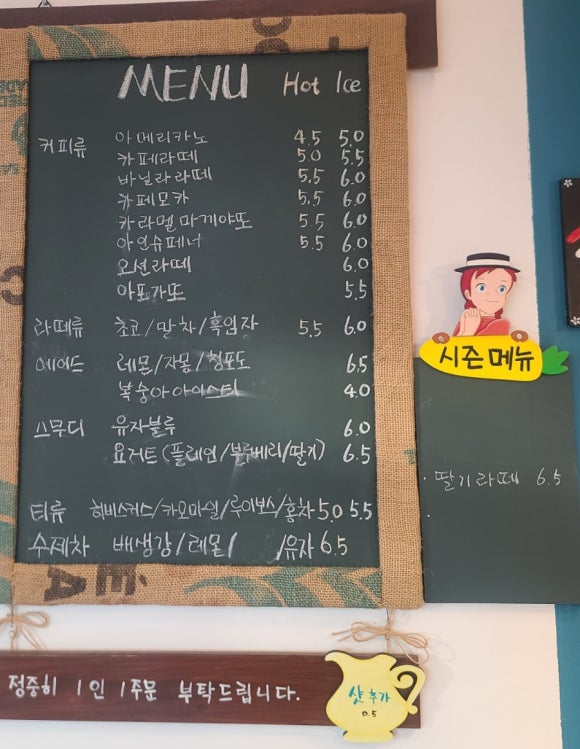 MENU Hot Ice
커피류 아메리카노 4.5 5.0
카페라떼 5.0 5.5
바닐라라떼 5.5 6.0
카페모카 5.5 6.0
카라멜마끼야또 5.5 6.0
아인슈페너 5.5 6.0
오션라떼 6.0
아포가또 5.5
라떼류 초코/말차/흑임자 5.5 6.0
에이드 레몬/자몽/청포도 6.5
복숭아아이스티 4.0
스무디 유자블루 6.0
요거트(플레인/블루베리/딸기) 6.5
티류 히비스커스/카모마일/루이보스/홍차 5.0 5.5
수제차 배생강/레몬/ /유자 6.5
시즌메뉴
· 딸기라떼 6.5
·
정중히 1인 1주문 부탁드립니다.
샷추가
0.5